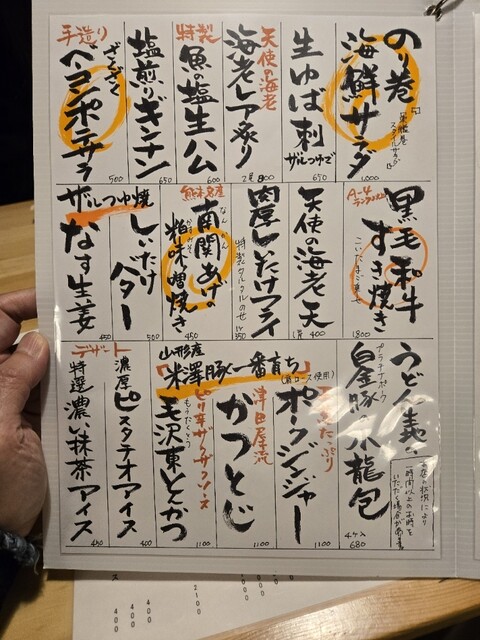 のり巻
海鮮サラダ
1,000
生ゆば刺
ザルつゆで
650
天使の海老
海老レア炙り
2尾 800
特製
魚の塩生ハム
600
塩煎りギンナン
650
手造り
ざくざく
ベーコンポテサラ
500
A-4
黒毛和牛
すき焼き
1800
天使の海老天
1尾 400
肉厚しいたけフライ
特製タルタルのせ
1ヶ 350
熊本名産
なんかん
南関あげの
粕味噌焼き
450
しいたけ
バター
500
ザルつゆ焼
なす生姜
450
うどん生地の
プラチナポーク
白金豚 小龍包
4ケ入
680
お店の状況により
一時間以上のお時を
いただく場合がありま
山形産
【米澤豚一番育ち】
(肩ロース使用)
たっぷり
ポークジンジャー
1100
津田屋流
かつとじ
1100
ピリ辛ザクザクソース
もうたくとう
毛沢東とんかつ
1100
デザート
濃厚ピスタチオアイス
400
特選濃い抹茶アイス
450
2100
400
400
400